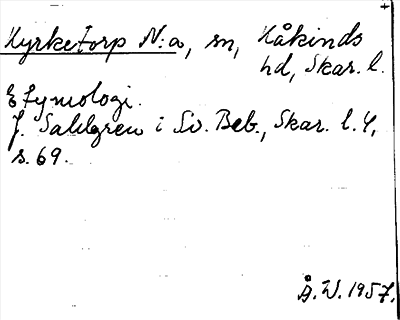 Kyrketorp N:a, sn, Kåkinds
hd, Skar. l.
Etymologi.
J. Sahlgren i Sv. Beb., Skar. l. 4,
s. 69.
Å. W. 1957.